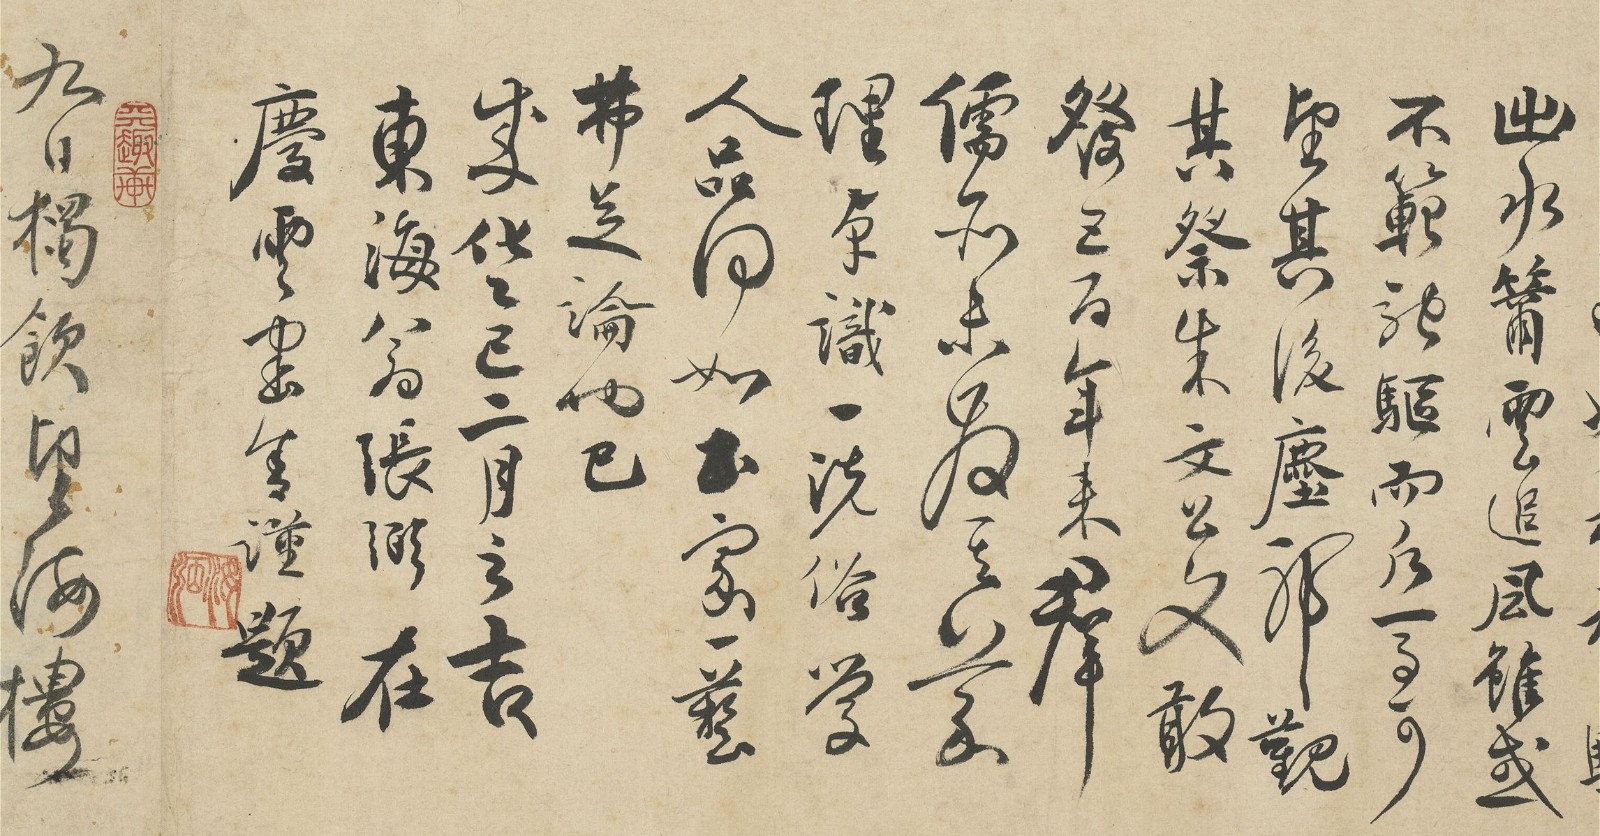 出水簫雲追風雖或
不範馳驅而氣一當可
望其後塵耶觀
其祭朱文公文敢
發已百年來群
儒所未爲之心其
理原識一洗俗學
人品何如書家一藝
弗足論也已
成化乙巳二月之吉
東海翁張弼在
慶雲書舍謹題
九日獨飲望海樓